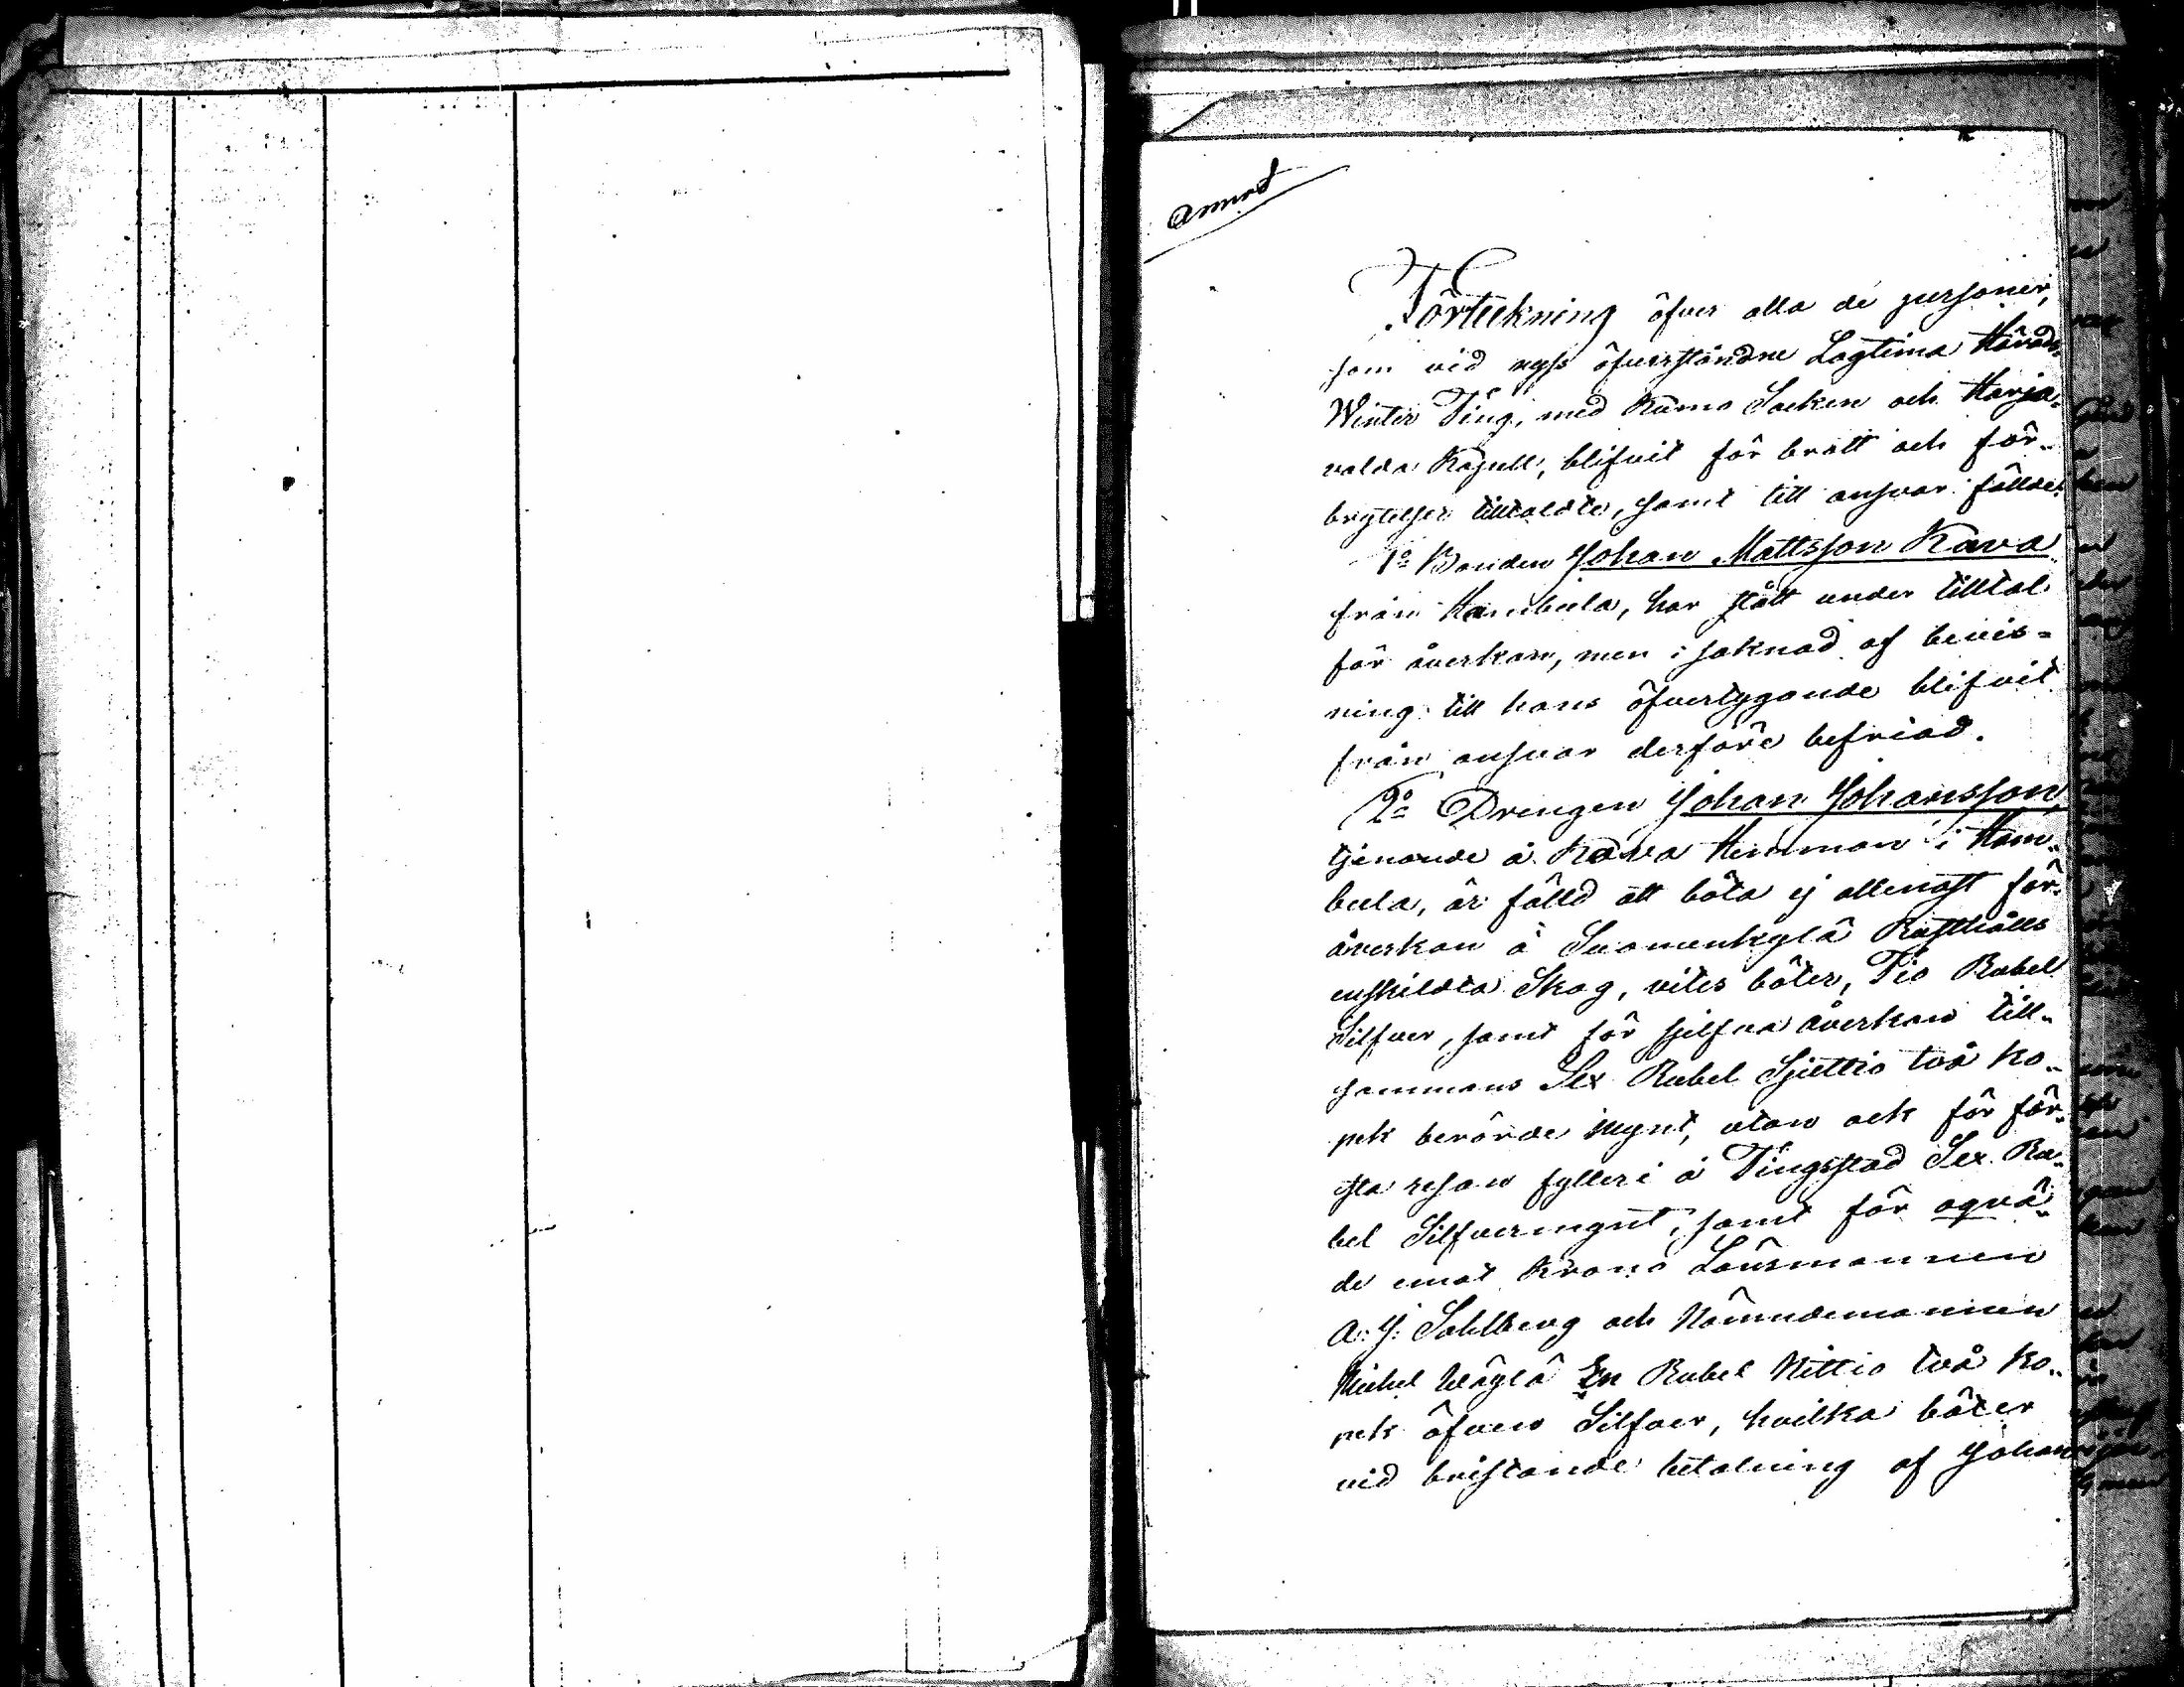 Förtekning öfver alla de personer,
som vid nyss öfverståndne Lagtima Härads
Winter Ting, med Kumo Socken och Harja-
valda Kapell, blifvit för brott och för-
brytelser tilltaldte, samt till ansvar fällde:
1o Bonden Johan Mattsson Kava
från Hambula, har stått under tilltal
för åverkan, men i saknad af bevis-
ning till hans öfvertygande blifvit
från ansvar derföre befriad.
2o Drengen Johan Johansson,
tjenande å Kava Hemman i Ham-
bula, är fälld att böta ej allenast för
åverkan å Suomenkylä Rusthålls
enskildta Skog, vites böter, Tio Rubel
Silfver, samt för sjelfva åverkan till-
sammans Sex Rubel Sjuttio två ko-
pek berörde mynt, utan ock för för-
sta resan fylleri å Tingsstad Sex Ru-
bel Silfvermynt, samt för oqvä-
de emot Krono Länsmannen
A: J: Sahlberg och Nämndemannen
Michel Ylöstalo En Rubel Nittio två ko-
pek äfven Silfver, hvilka böter
vid bristande betalning af Johan